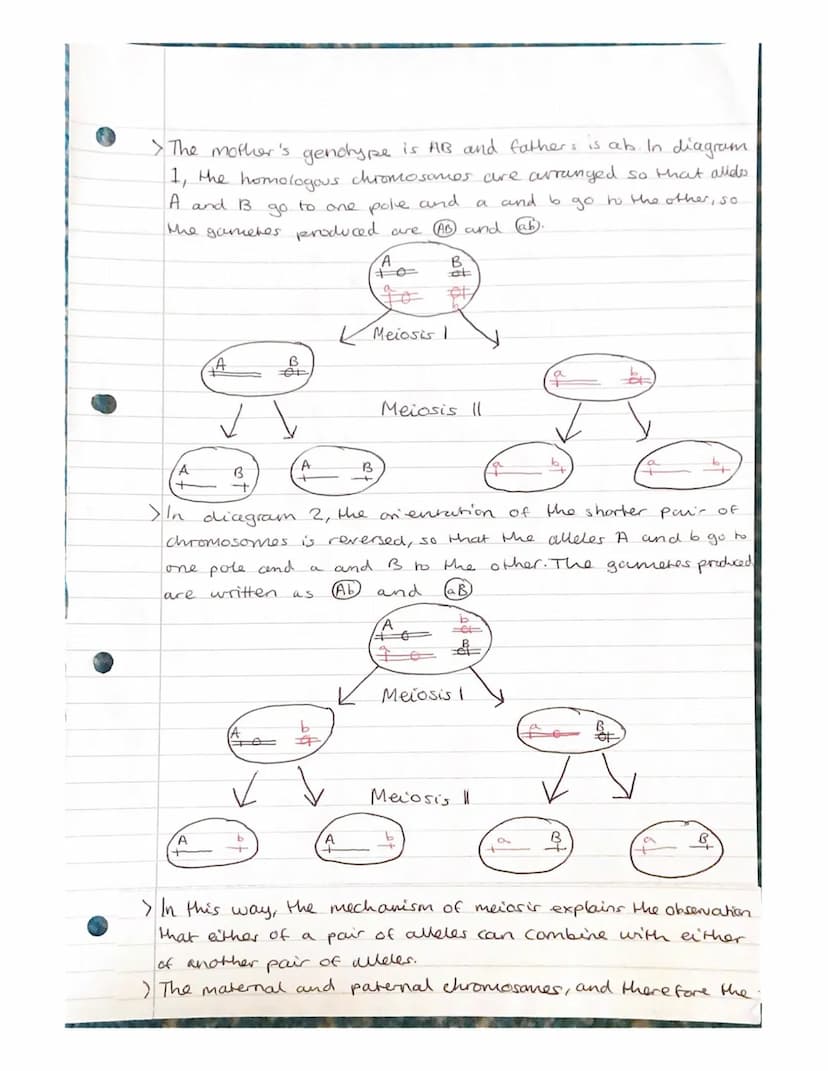 > The mother's genotype is AB and fathers is ab. In diagram
1, the homologous chromosomes are arranged so that alleles
A and B go to one pole and a and b go to the other, so
the gametes produced are AB and ab.
A B
a b
Meiosis I
A B a b
Meiosis II
A B A B a b a b
> In diagram 2, the orientation of the shorter pair of
chromosomes is reversed, so that the alleles A and b go to
one pole and a and B to the other. The gametes produced
are written as Ab and aB
A b
a B
Meiosis I
A b a B
Meiosis II
A b A b a B a B
> In this way, the mechanism of meiosis explains the observation
that either of a pair of alleles can combine with either
of another pair of alleles.
> The maternal and paternal chromosomes, and therefore the